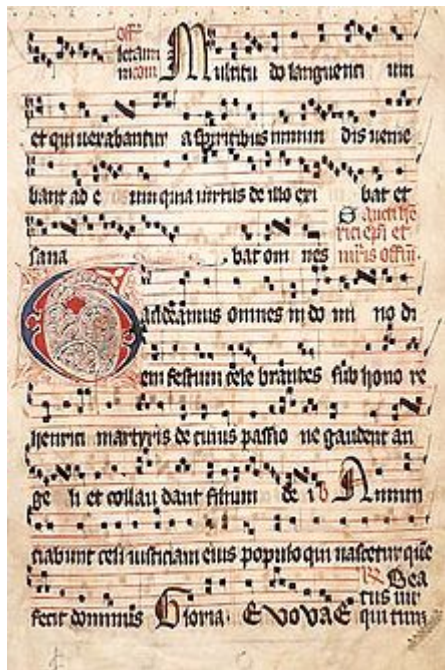 off
Multitu do languenci um
et qui vexabantur a spiritibus inmun dis venie
bant ad e um quia virtus de illo exi bat et
sana bat om nes
Gaudeamus omnes in do mi no di
em festum cele brantes sub hono re
henrici martyris de cuius passio ne gaudent an
ge li et collau dant filium de i Annun
ciabunt celi iusticiam eius populo qui nascetur que
fecit dominus Gloria. EVOVAE
Bea
tus vir
qui tim